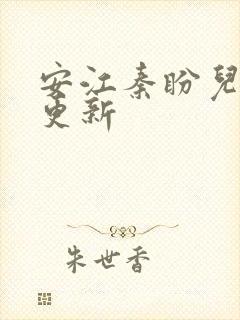 安江秦盼兒
更新
朱世香